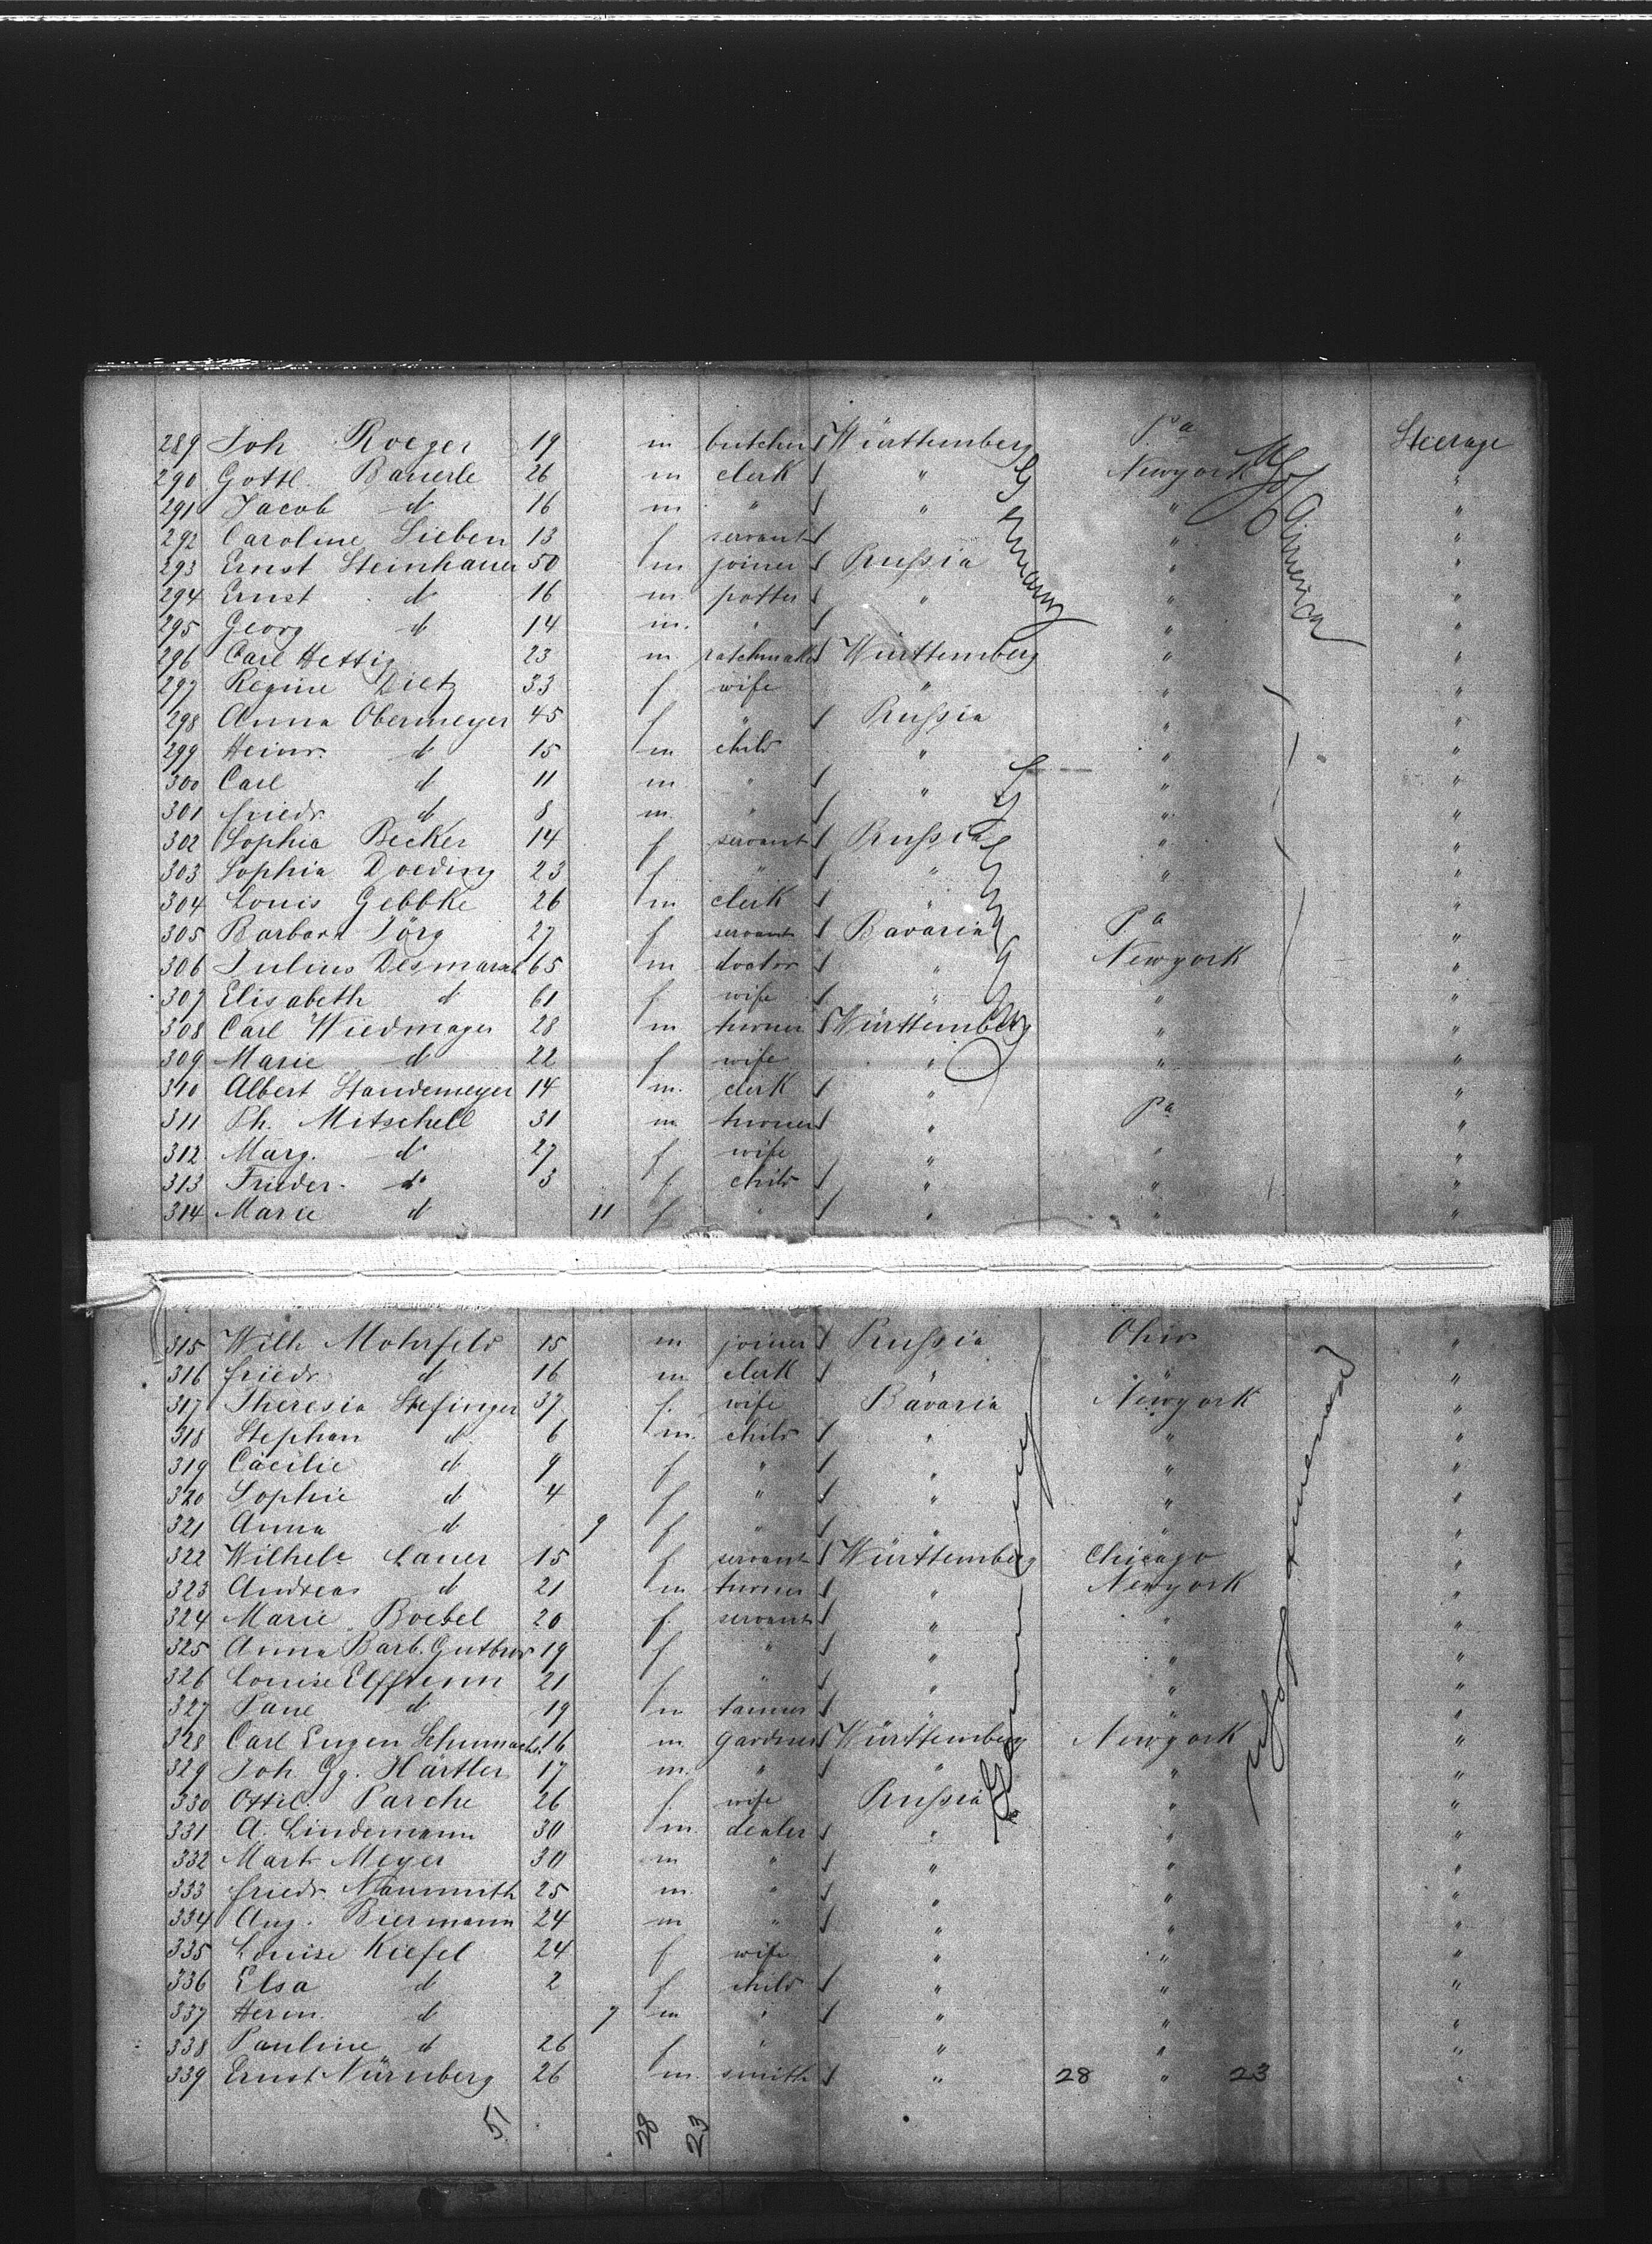 289 Joh Roeger 19 m butcher Württemberg Pa Steerage
290 Gottl. Bauerle 26 m clerk " Newyork "
291 Jacob d 16 m " " " "
292 Caroline Lieben 13 f servant " "
293 Ernst Steinhauer 50 m joiner Russia " "
294 Ernst d 16 m potter " " "
295 Georg d 14 m. " " "
296 Carl Hettig 23 m Württemberg " "
297 Regine Dietz 33 f. wife " " "
298 Anna Obermeyer 45 f " Russia " "
299 Heinr. d 15 m child " " "
300 Carl d 11 m " " " "
301 friedr. d 8 m. " " "
302 Sophia Becker 14 f servant Russia " "
303 Sophia Doeding 23 f " " " "
304 Louis Gebbke 26 m clerk " "
305 Barbara Jörg 27 f servant Bavaria Pa "
306 Julius 65 m doctor " Newyork "
307 Elisabeth d 61 f. wife " " "
308 Carl Wiedmayer 28 m turner Württemberg " "
309 Marie d 22 f wife " " "
310 Albert Standemeyer 14 m. clerk " "
311 Ph. Mitschell 31 m turner " Pa "
312 Marg. d 27 f wife " " "
313 Frieder. d 3 f child " " "
314 Marie d 11 f " " " "
Germany
U.S. of America
Germany
315 Wilh Mohrfeld 15 m joiner Russia Ohio "
316 friedr d 16 m clerk " "
317 Theresia Stefinger 37 f. wife Bavaria Newyork "
318 Stephan d 6 m. child " " "
319 Cäcilie d 9 f " " " "
320 Sophie d 4 f " " " "
321 Anna d 9 f " " " "
322 Wilhele Lauer 15 f. servant Württemberg Chicago "
323 Andreas d 21 m turner " Newyork "
324 Marie Boebel 20 f. servant " " "
325 Anna Barb. Gutbrod 19 f " " " "
326 Louise 21 f " " "
327 d 19 m tanner " " "
328 Carl Eugen Schumach. 16 m. gardner Württemberg Newyork "
329 Joh. Gg. Härtler 17 m. " " " "
330 Ottil. Parche 26 f. wife Russia " "
331 A. Lindemann 30 m. dealer " " "
332 Mart Meyer 30 m " " " "
333 friedr. 25 m. " " " "
334 Aug. Biermann 24 m " " " "
335 Louise Kiefel 24 f wife " " "
336 Elsa d 2 f child " " "
337 Herm. d 7 m " " " "
338 Pauline d 26 f " " " "
339 Ernst Nürnberg 26 m. smith " 28 " 23 "
Germany
U.S. of America
51 28 23